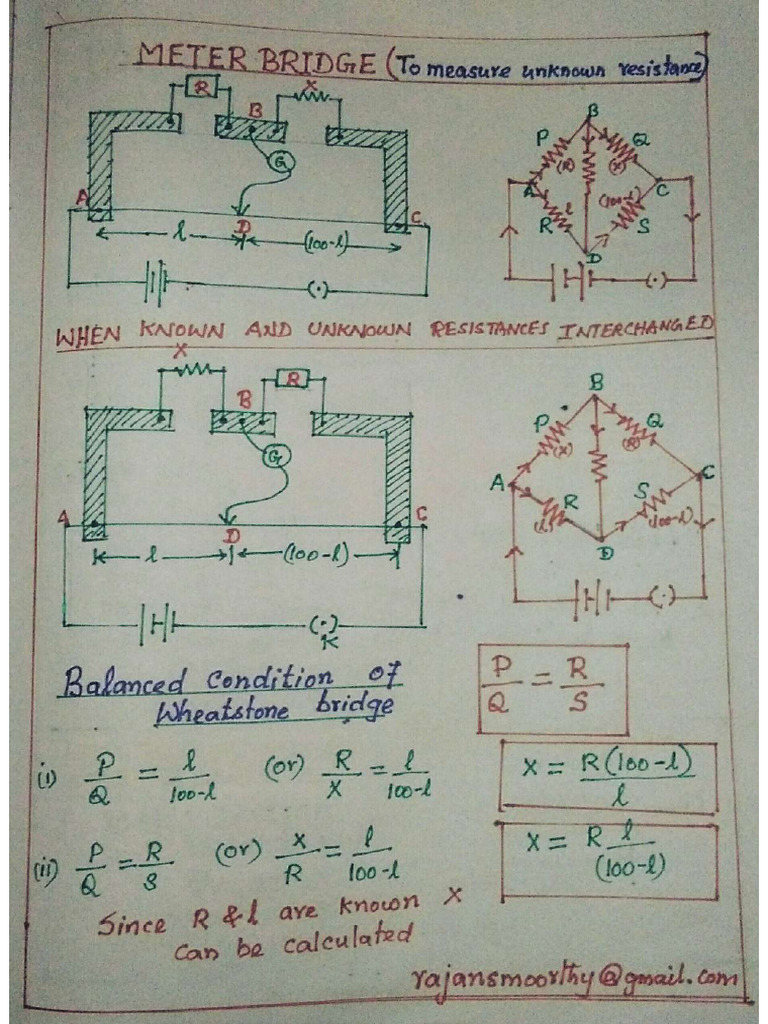 METER BRIDGE (To measure unknown resistance)
R
X
B
G
A
D
C
l
(100-l)
( . )
B
P
Q
(R)
(X)
A
C
R
l
(100-l)
S
D
( . )
WHEN KNOWN AND UNKNOWN RESISTANCES INTERCHANGED
X
R
B
G
A
D
C
l
(100-l)
( . )
K
B
P
Q
(X)
(R)
A
C
R
S
(l)
(100-l)
D
( . )
Balanced condition of
Wheatstone bridge
P/Q = R/S
(i) P/Q = l/100-l (or) R/X = l/100-l
X = R(100-l)/l
(ii) P/Q = R/S (or) X/R = l/100-l
X = R l/(100-l)
Since R & l are known X
can be calculated
rajansmoorthy@gmail.com